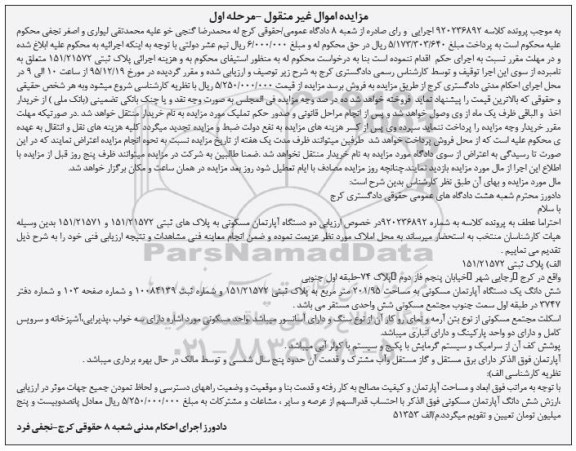 مزایده اموال غیر منقول -مرحله اول
به موجب پرونده کلاسه ۹۲۰۲۳۶۸۹۲ اجرایی و رای صادره از شعبه ۸ دادگاه عمومی/حقوقی کرج له محمدرضا گنجی خو علیه محمدتقی لیواری و اصغر نجفی محکوم
علیه محکوم است به پرداخت مبلغ ۵/۱۷۳/۳۰۳/۶۴۰ ریال در حق محکوم له و مبلغ ۶/۰۰۰/۰۰۰ ریال نیم عشر دولتی با توجه به اینکه اجرائیه به محکوم علیه ابلاغ شده
و در مهلت مقرر نسبت به اجرای حکم اقدام ننموده است بنا به درخواست محکوم له به منظور استیفای محکوم به و هزینه اجرائی پلاک ثبتی ۱۵۱/۲۱۵۷۲ متعلق به
نامبرده از سوی این اجرا توقیف و توسط کارشناس رسمی دادگستری کرج به شرح زیر توصیف و ارزیابی شده و مقرر گردیده در مورخ ۹۵/۱۲/۱۹ از ساعت ۱۰ الی ۹ در
محل اجرای احکام مدنی دادگستری کرج از طریق مزایده به فروش برسد مزایده از قیمت ۵/۲۵۰/۰۰۰/۰۰۰ ریال با نظریه کارشناسی شروع میشود وبه هر شخص حقیقی
و حقوقی که بالاترین قیمت را پیشنهاد نماید فروخته خواهد شد ده در صد وجه مزایده فی المجلس به صورت وجه نقد و یا چنک بانکی تضمینی (بانک ملی ) از خریدار
اخذ و الباقی ظرف یک ماه از وی وصول خواهد شد و پس از انجام مراحل قانونی و صدور حکم تملیک مورد مزایده به نام خریدار منتقل خواهد شد .در صورتیکه مهلت
مقرر خریدار وجه مزایده را پرداخت ننماید سپرده وی پس از کسر هزینه های مزایده به نفع دولت ضبط و مزایده تجدید میگردد کلیه هزینه های نقل و انتقال به عهده
ی محکوم علیه است که از محل فروش پرداخت خواهد شد طرفین میتوانند ظرف مدت یک هفته از تاریخ مزایده نسبت به نحوه انجام مزایده اعتراض نمایند که در این
صورت تا رسیدگی به اعتراض از سوی دادگاه مورد مزایده به نام خریدار منتقل نخواهد شد .ضمنا طالبین به شرکت در مزایده میتوانند ظرف پنج روز قبل از مزایده با
اطلاع این اجرا از مال مورد مزایده بازدید نمایند.چنانچه روز مزایده مصادف با ایام تعطیل شود روز بعد مزایده در همان ساعت و مکان برگزار خواهد شد.
مال مورد مزایده و بهای آن طبق نظر کارشناس بدین شرح است:
دادورز محترم شعبه هشت دادگاه های عمومی حقوقی دادگستری کرج
با سلام
احتراما عطف به پرونده کلاسه به شماره ۹۲۰۲۳۶۸۹۲درخصوص ارزیابی دو دستگاه آپارتمان مسکونی به پلاک های ثبتی ۱۵۱/۲۱۵۷۲ و ۱۵۱/۲۱۵۷۱ بدین وسیله
هیات کارشناسان منتخب به استحضار میرساند به محل املاک مورد نظر عزیمت نموده و ضمن انجام معاینه فنی مشاهدات و نتیجه ارزیابی فنی خود را به شرح ذیل
تقدیم می نماییم .
الف) پلاک ثبتی ۱۵۱/۲۱۵۷۲
واقع در کرج رجایی شهر خیابان پنجم فاز دوم پلاک ۷۴-طبقه اول جنوبی
شش دانگ یک دستگاه آپارتمان مسکونی به مساحت ۲۰۱/۹۵ متر مربع به پلاک ثبتی ۱۵۱/۲۱۵۷۲ و شماره ثبت ۱۰۰۸۴۱۴۹ و شماره صفحه ۱۰۳ و شماره دفتر
۳۷۴۷ در طبقه اول سمت جنوب مجتمع مسکونی شش واحدی مستقر می باشد .
اسکلت مجتمع مسکونی از نوع بتن آرمه و نمای رو کار آن از نوع سنگ و دارای آسانسور میباشد واحد مسکونی مورد اشاره دارای سه خواب ،پذیرایی،آشپزخانه و سرویس
کامل و دارای دو واحد پارکینگ و دارای انباری میباشد.
پوشش کف آن از سرامیک و سیستم گرمایش با پکیج و سیستم با کولر آبی میباشد .
آپارتمان فوق الذکر دارای برق مستقل و گاز مستقل وآب مشترک و قدمت آن حدود پنج سال شمسی و توسط مالک در حال بهره برداری میباشد .
نظریه کارشناسی الف):
با توجه به مراتب فوق ابعاد و مساحت آپارتمان و کیفیت مصالح به کار رفته و قدمت بنا و موقعیت و وضعیت راههای دسترسی و لحاظ نمودن جمیع جهات موثر در ارزیابی
،ارزش شش دانگ آپارتمان مسکونی فوق الذکر با احتساب قدرالسهم از عرصه و سایر ، مشاعات و مشترکات به مبلغ ۵/۲۵۰/۰۰۰/۰۰۰ ریال معادل پانصدوبیست و پنج
میلیون تومان تعیین و تقویم میگردد.م/الف ۵۱۳۵۳
دادورز اجرای احکام مدنی شعبه ۸ حقوقی کرج-نجفی فرد
ParsNamadData